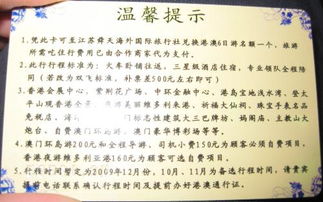 温馨提示
1.凭此卡可至江苏舜天海外国际旅行社兑换港澳6日游名额一个,旅游
所需吃住行费用已由合作商家代为支付。
2.此行行程标准为:火车卧铺往返,三星级酒店住宿,专业领队全程陪
同(若改为双飞标准,补票差500元左右即可)
3.香港会展中心、紫荆花广场、中环金融中心、港岛宝地浅水湾、登太
平山观香港全景、维多利来港、祈福大仙祠、珠宝手表名品
免税店、海 门标志性建筑大三巴牌坊、妈阁庙、主教山大
炮台、自费澳门环岛游、澳门豪华博彩场等等。
4.澳门环岛游200元和全程导游,司机小费150元为顾客必须自费项目。
香港夜游维多利亚港160元为顾客可选自费项目。
5.行程时间暂定为2009年12月份,10月、11月为备选行程时间,请贵宾
提前电话联系确认行程时间及提前办好港澳通行证。